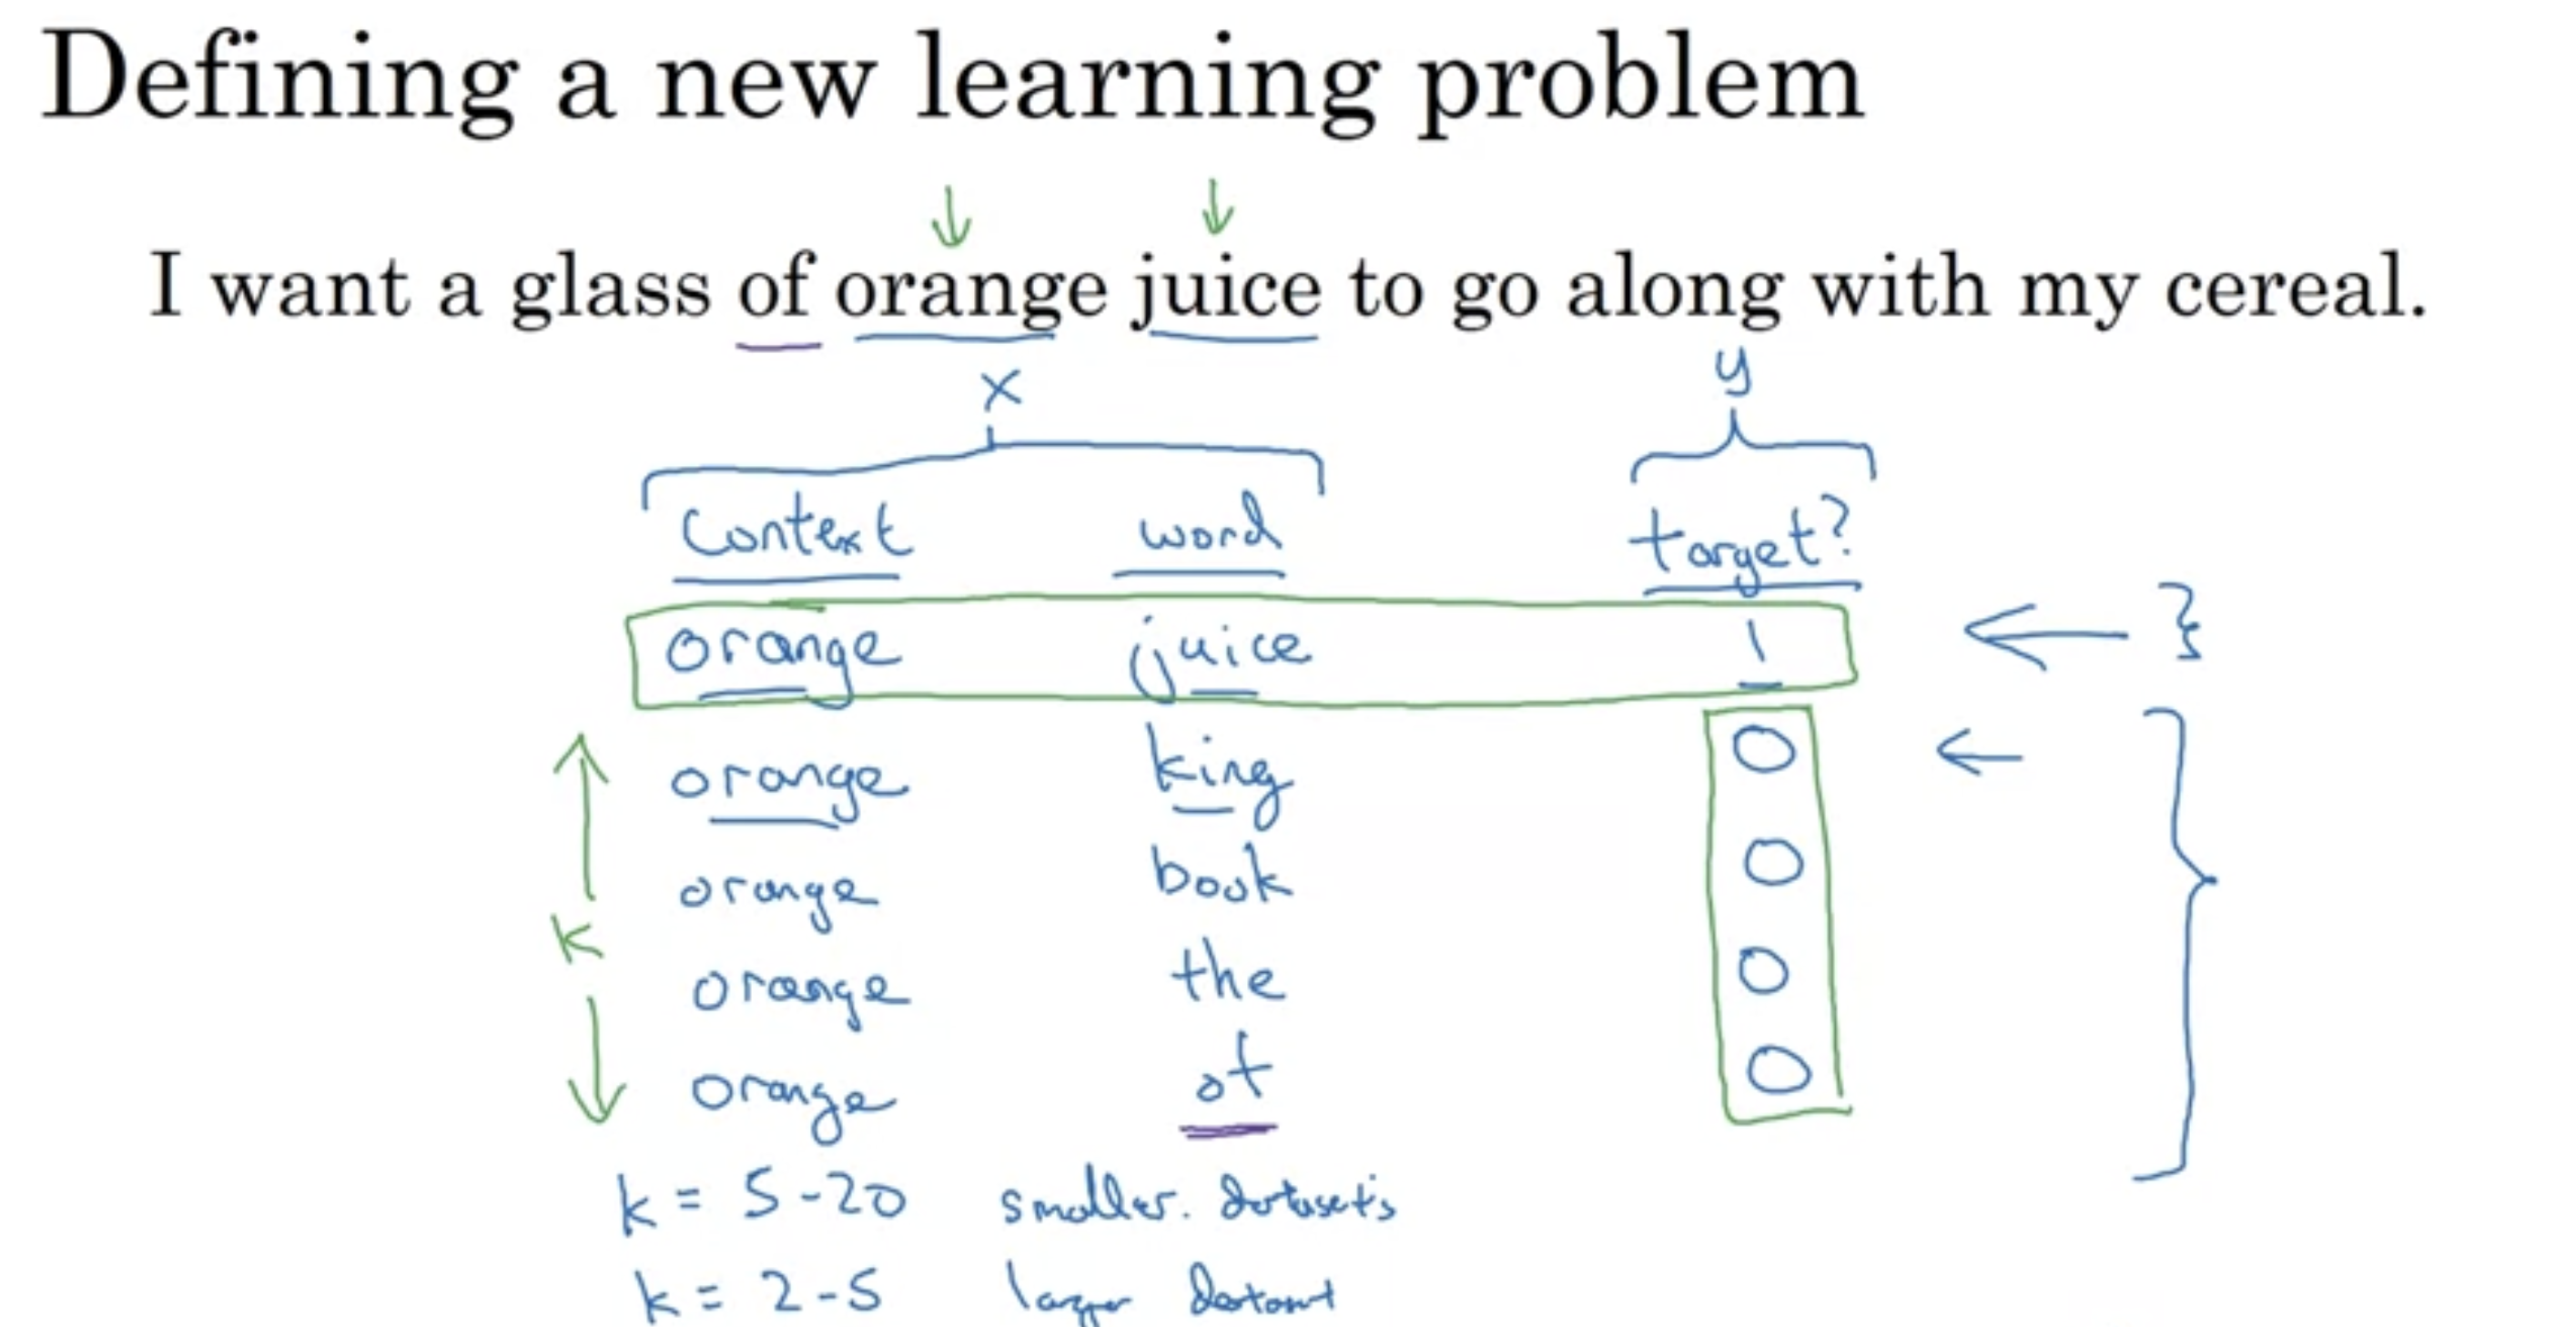 Defining a new learning problem
I want a glass of orange juice to go along with my cereal.
x y
Context word target?
orange juice 1
orange king 0
orange book 0
k
orange the 0
orange of 0
k = 5-20 smaller. datasets
k = 2-5 larger dataset